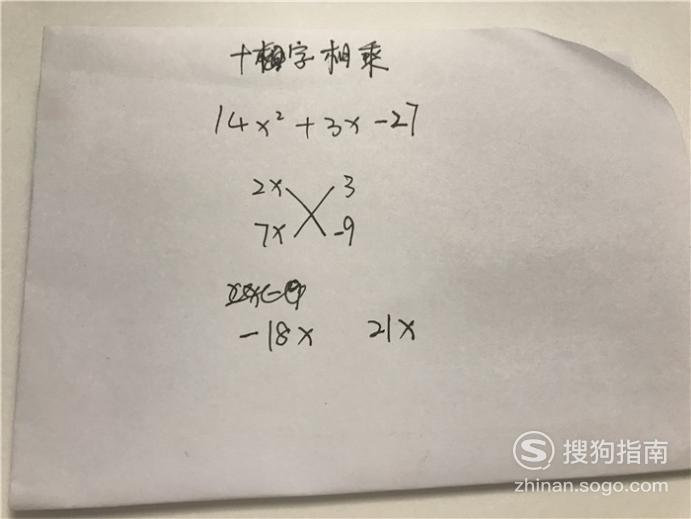 十字相乘
14x² + 3x - 27
2x 3
7x -9
-18x 21x
S 搜狗指南
zhinan.sogo.com